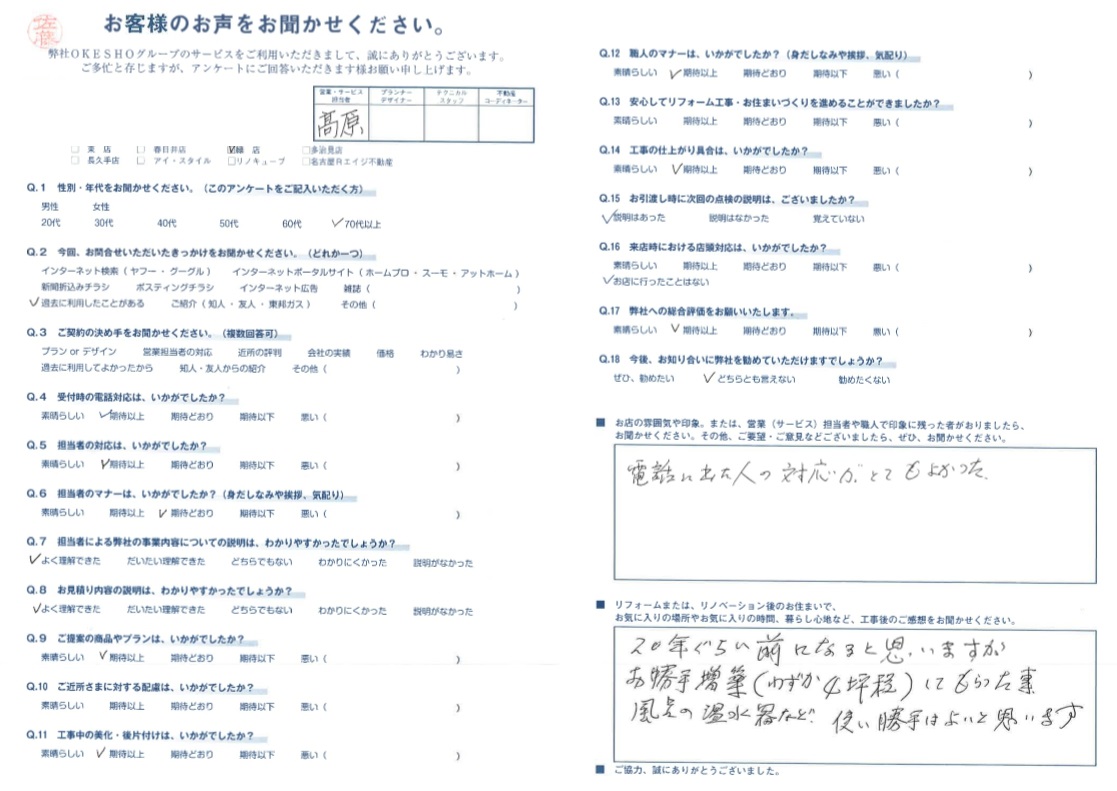 佐藤
お客様のお声をお聞かせください。
弊社OKESHOグループのサービスをご利用いただきまして、誠にありがとうございます。
ご多忙と存じますが、アンケートにご回答いただきます様お願い申し上げます。
営業・サービス担当者 プランナーデザイナー テクニカルスタッフ 不動産コーディネーター
髙原
□ 東 店 □ 春日井店 ☑緑 店 □多治見店
□ 長久手店 □ アイ・スタイル □リノキューブ □名古屋Rエイジ不動産
Q.1 性別・年代をお聞かせください。(このアンケートをご記入いただく方)
男性 女性
20代 30代 40代 50代 60代 ✓70代以上
Q.2 今回、お問合せいただいたきっかけをお聞かせください。(どれか一つ)
インターネット検索(ヤフー・グーグル) インターネットポータルサイト(ホームプロ・スーモ・アットホーム)
新聞折込みチラシ ポスティングチラシ インターネット広告 雑誌( )
✓過去に利用したことがある ご紹介(知人・友人・東邦ガス) その他( )
Q.3 ご契約の決め手をお聞かせください。(複数回答可)
プラン or デザイン 営業担当者の対応 近所の評判 会社の実績 価格 わかり易さ
過去に利用してよかったから 知人・友人からの紹介 その他( )
Q.4 受付時の電話対応は、いかがでしたか?
素晴らしい ✓期待以上 期待どおり 期待以下 悪い( )
Q.5 担当者の対応は、いかがでしたか?
素晴らしい ✓期待以上 期待どおり 期待以下 悪い( )
Q.6 担当者のマナーは、いかがでしたか?(身だしなみや挨拶、気配り)
素晴らしい 期待以上 ✓期待どおり 期待以下 悪い( )
Q.7 担当者による弊社の事業内容についての説明は、わかりやすかったでしょうか?
✓よく理解できた だいたい理解できた どちらでもない わかりにくかった 説明がなかった
Q.8 お見積り内容の説明は、わかりやすかったでしょうか?
✓よく理解できた だいたい理解できた どちらでもない わかりにくかった 説明がなかった
Q.9 ご提案の商品やプランは、いかがでしたか?
素晴らしい ✓期待以上 期待どおり 期待以下 悪い( )
Q.10 ご近所さまに対する配慮は、いかがでしたか?
素晴らしい 期待以上 期待どおり 期待以下 悪い( )
Q.11 工事中の美化・後片付けは、いかがでしたか?
素晴らしい ✓期待以上 期待どおり 期待以下 悪い( )
Q.12 職人のマナーは、いかがでしたか?(身だしなみや挨拶、気配り)
素晴らしい ✓期待以上 期待どおり 期待以下 悪い( )
Q.13 安心してリフォーム工事・お住まいづくりを進めることができましたか?
素晴らしい 期待以上 期待どおり 期待以下 悪い( )
Q.14 工事の仕上がり具合は、いかがでしたか?
素晴らしい ✓期待以上 期待どおり 期待以下 悪い( )
Q.15 お引渡し時に次回の点検の説明は、ございましたか?
✓説明はあった 説明はなかった 覚えていない
Q.16 来店時における店頭対応は、いかがでしたか?
素晴らしい 期待以上 期待どおり 期待以下 悪い( )
✓お店に行ったことはない
Q.17 弊社への総合評価をお願いいたします。
素晴らしい ✓期待以上 期待どおり 期待以下 悪い( )
Q.18 今後、お知り合いに弊社を勧めていただけますでしょうか?
ぜひ、勧めたい ✓どちらとも言えない 勧めたくない
■ お店の雰囲気や印象。または、営業(サービス)担当者や職人で印象に残った者がおりましたら、
お聞かせください。その他、ご要望・ご意見などございましたら、ぜひ、お聞かせください。
電話に出た人の対応が、とてもよかった。
■ リフォームまたは、リノベーション後のお住まいで、
お気に入りの場所やお気に入りの時間、暮らし心地など、工事後のご感想をお聞かせください。
20年ぐらい前になると思いますが
お勝手増築(わずか4坪程)してもらった事
風呂の温水器など 使い勝手はよいと思います
■ ご協力、誠にありがとうございました。